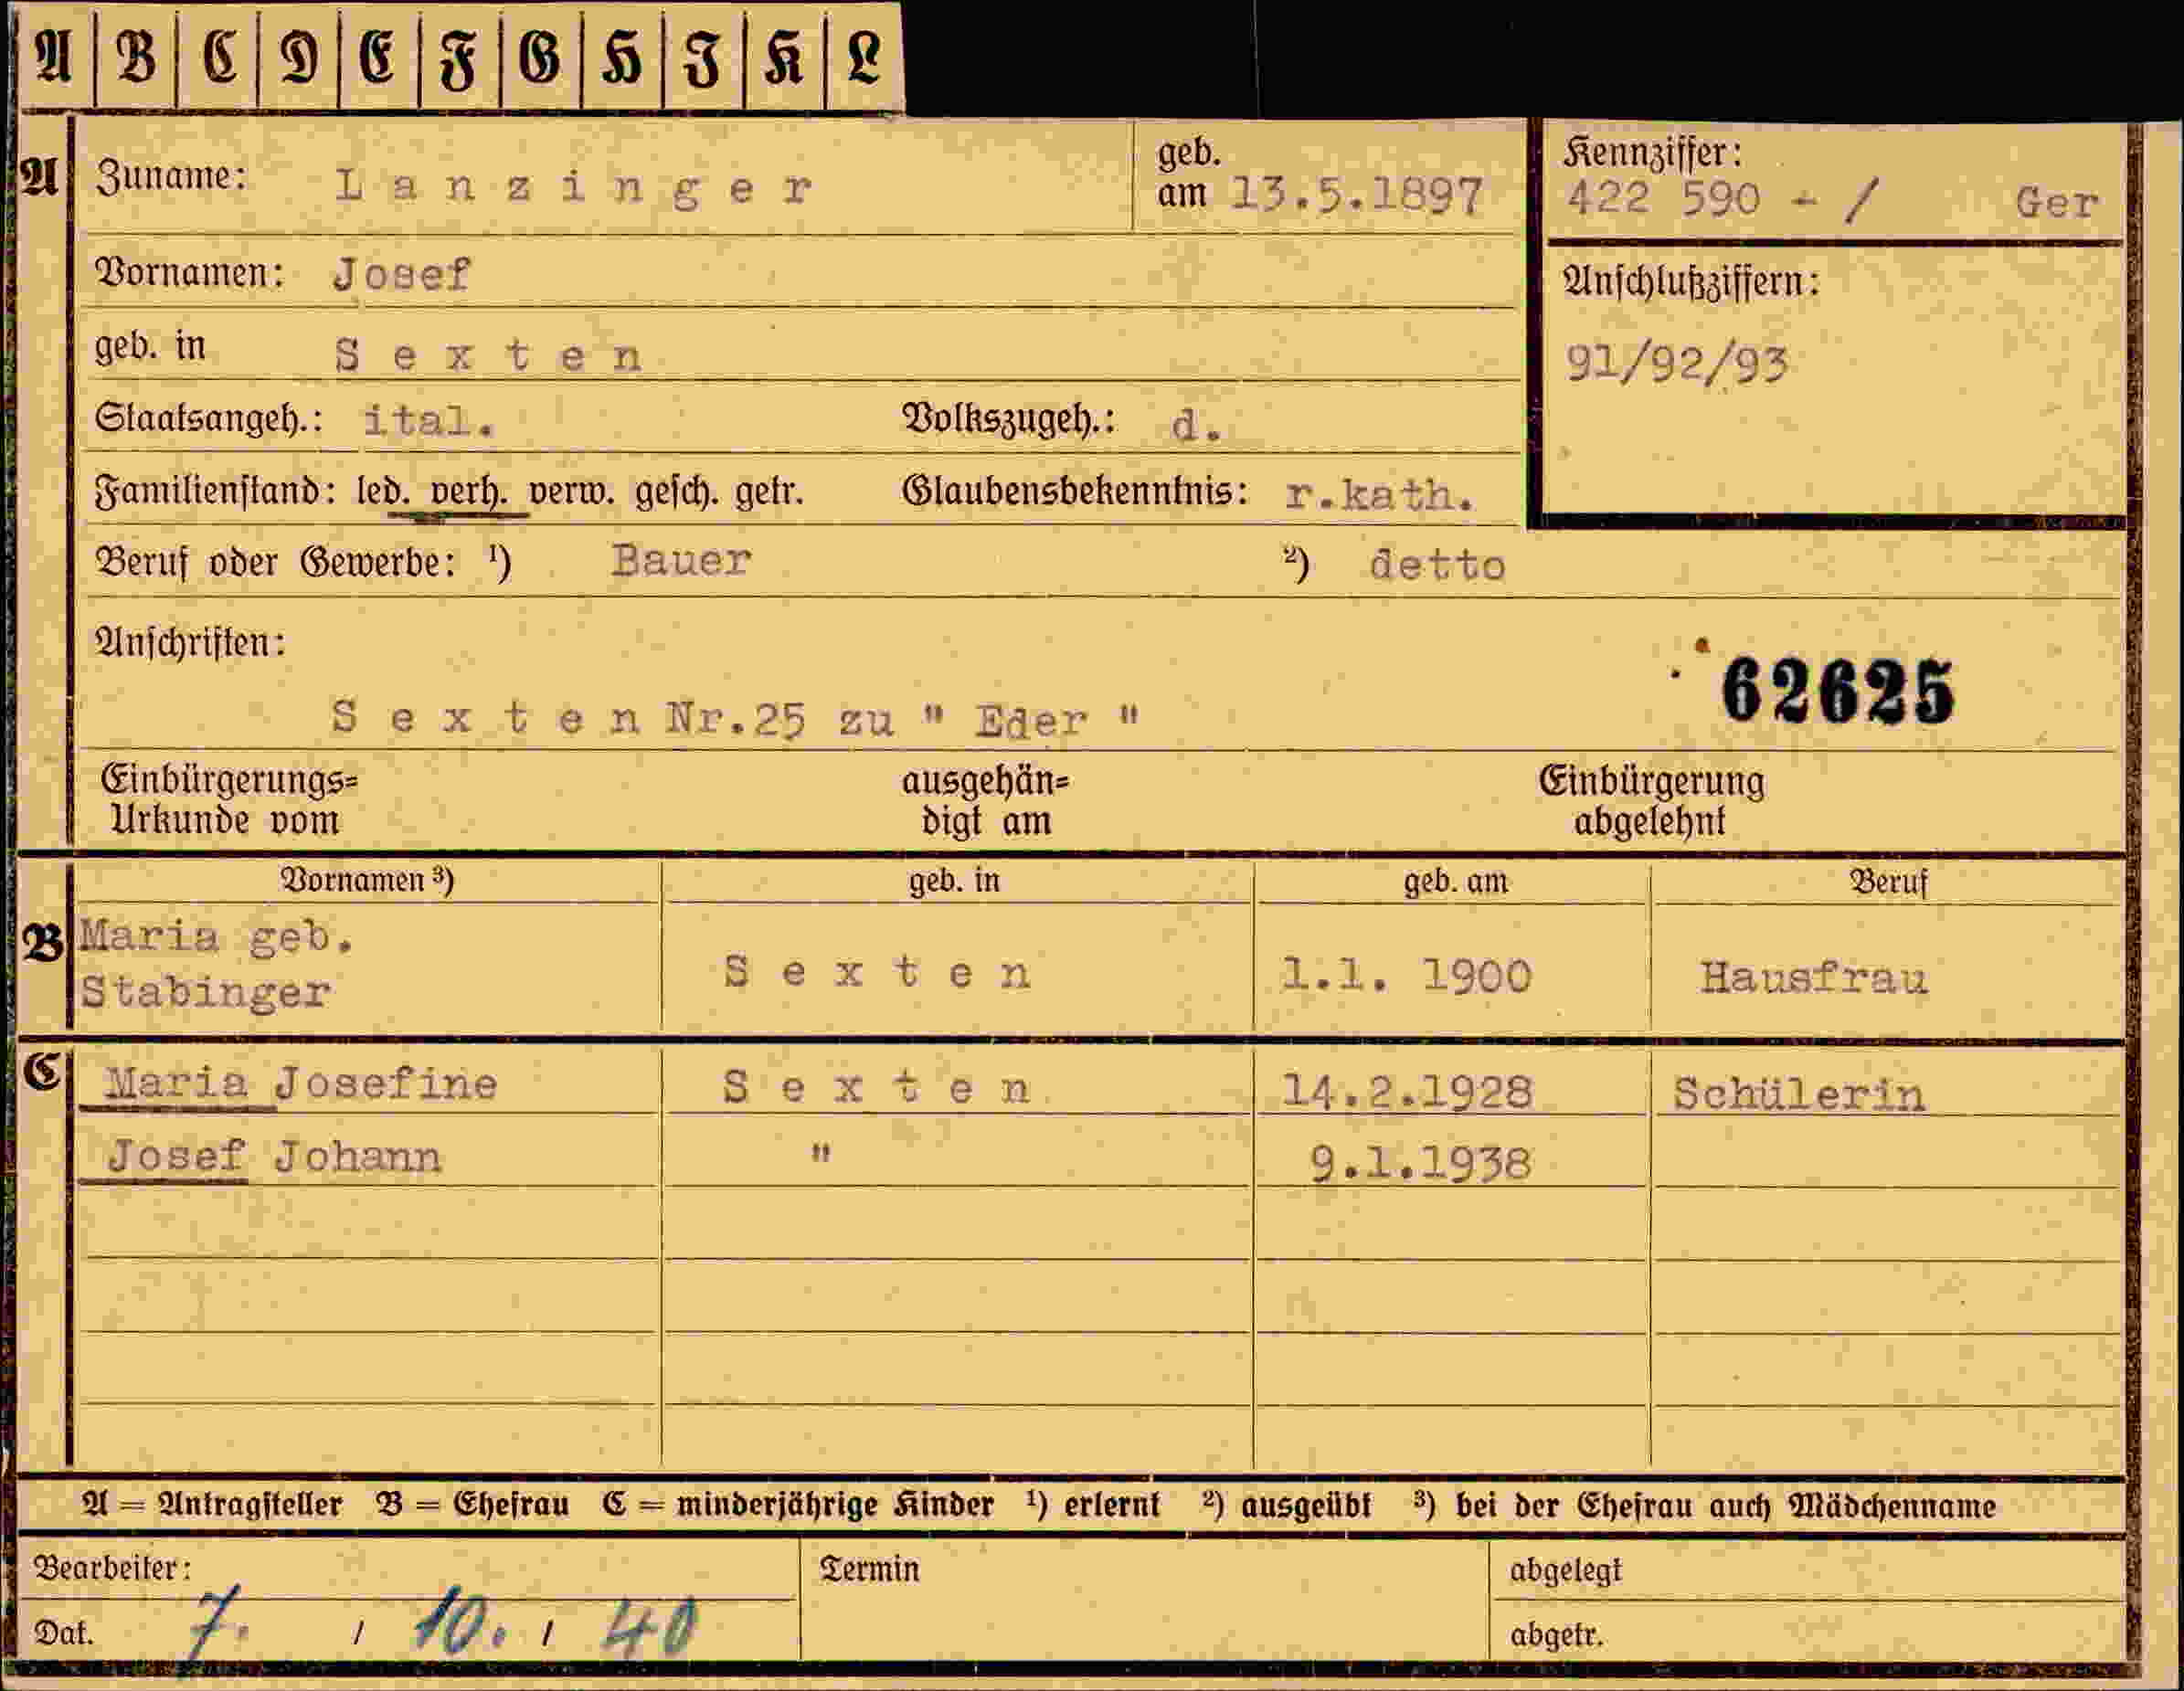 A B C D E F G H I K L
A Zuname: Lanzinger geb. am 13.5.1897 Kennziffer:
422 590 - / Ger
Vornamen: Josef Anschlußziffern:
geb. in Sexten 91/92/93
Staatsangeh.: ital. Volkszugeh.: d.
Familienstand: led. verh. verw. gesch. getr. Glaubensbekenntnis: r.kath.
Beruf oder Gewerbe: ¹) Bauer ²) detto
Anschriften:
62625
Sexten Nr.25 zu " Eder "
Einbürgerungs= ausgehän= Einbürgerung
Urkunde vom digt am abgelehnt
Vornamen ³) geb. in geb. am Beruf
B Maria geb.
Stabinger Sexten 1.1. 1900 Hausfrau
C Maria Josefine Sexten 14.2.1928 Schülerin
Josef Johann " 9.1.1938
A = Antragsteller B = Ehefrau C = minderjährige Kinder ¹) erlernt ²) ausgeübt ³) bei der Ehefrau auch Mädchenname
Bearbeiter: Termin abgelegt
Dat. 7. / 10. / 40 abgetr.